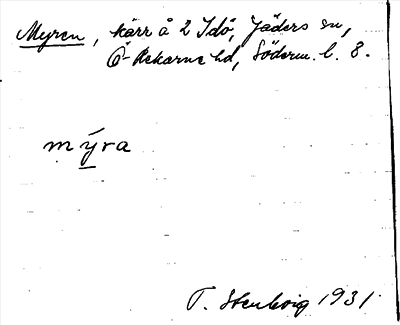 Myren, kärr å 2 Idö, Jäders sn,
Ö-Rekarne hd, Söderm. l. 8.
mýra
T. Stenkvig 1931